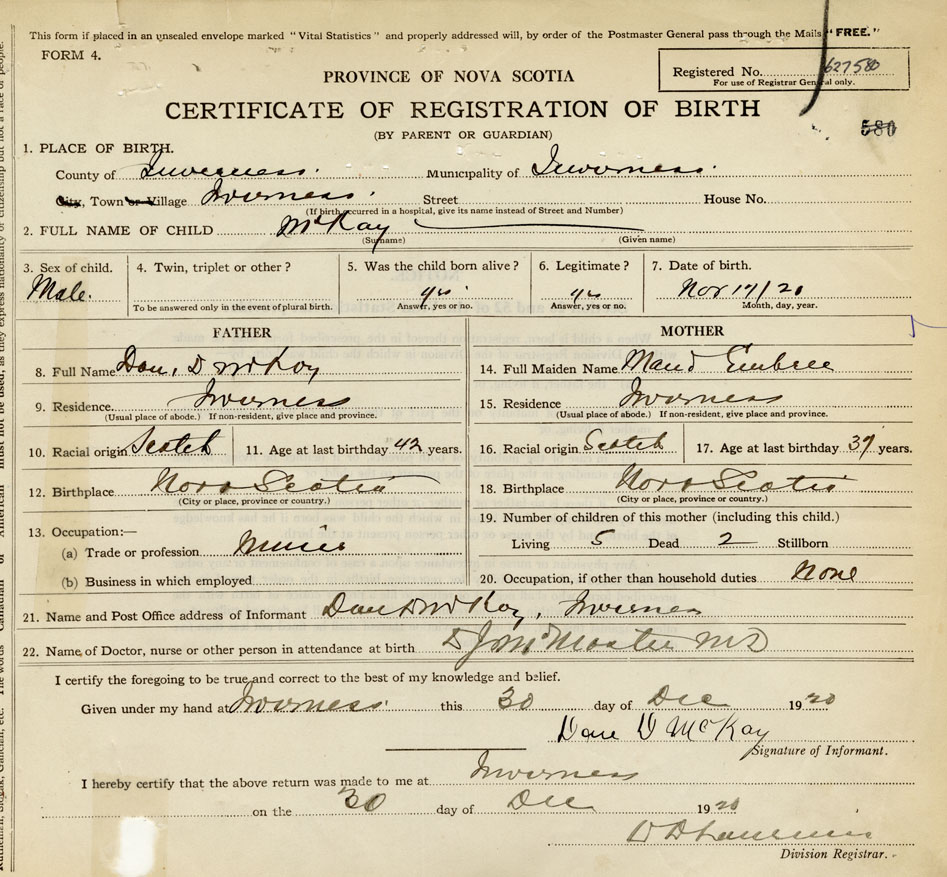 This form if placed in an unsealed envelope marked "Vital Statistics" and properly addressed will, by order of the Postmaster General pass through the Mails "FREE."
FORM 4.
PROVINCE OF NOVA SCOTIA
Registered No. 627580
For use of Registrar General only.
CERTIFICATE OF REGISTRATION OF BIRTH
580
(BY PARENT OR GUARDIAN)
1. PLACE OF BIRTH.
County of Inverness. Municipality of Inverness.
City, Town or Village Inverness. Street House No.
(If birth occurred in a hospital, give its name instead of Street and Number)
2. FULL NAME OF CHILD McKay
(Surname) (Given name)
3. Sex of child. 4. Twin, triplet or other? 5. Was the child born alive? 6. Legitimate? 7. Date of birth.
Male. yes yes Nov 17/20
To be answered only in the event of plural birth. Answer, yes or no. Answer, yes or no. Month, day, year.
FATHER MOTHER
8. Full Name Dan. D McKay 14. Full Maiden Name Maud Embree
9. Residence Inverness 15. Residence Inverness
(Usual place of abode.) If non-resident, give place and province. (Usual place of abode.) If non-resident, give place and province.
10. Racial origin Scotch 11. Age at last birthday 42 years. 16. Racial origin Scotch 17. Age at last birthday 37 years.
12. Birthplace Nova Scotia 18. Birthplace Nova Scotia
(City or place, province or country.) (City or place, province or country.)
19. Number of children of this mother (including this child.)
13. Occupation:—
(a) Trade or profession Miner Living 5 Dead 2 Stillborn
(b) Business in which employed 20. Occupation, if other than household duties None
21. Name and Post Office address of Informant Dan D McKay, Inverness
22. Name of Doctor, nurse or other person in attendance at birth McMaster MD
I certify the foregoing to be true and correct to the best of my knowledge and belief.
Given under my hand at Inverness this 30 day of Dec 1920
Dan D McKay
Signature of Informant.
I hereby certify that the above return was made to me at Inverness
on the 30 day of Dec 1920
Division Registrar.